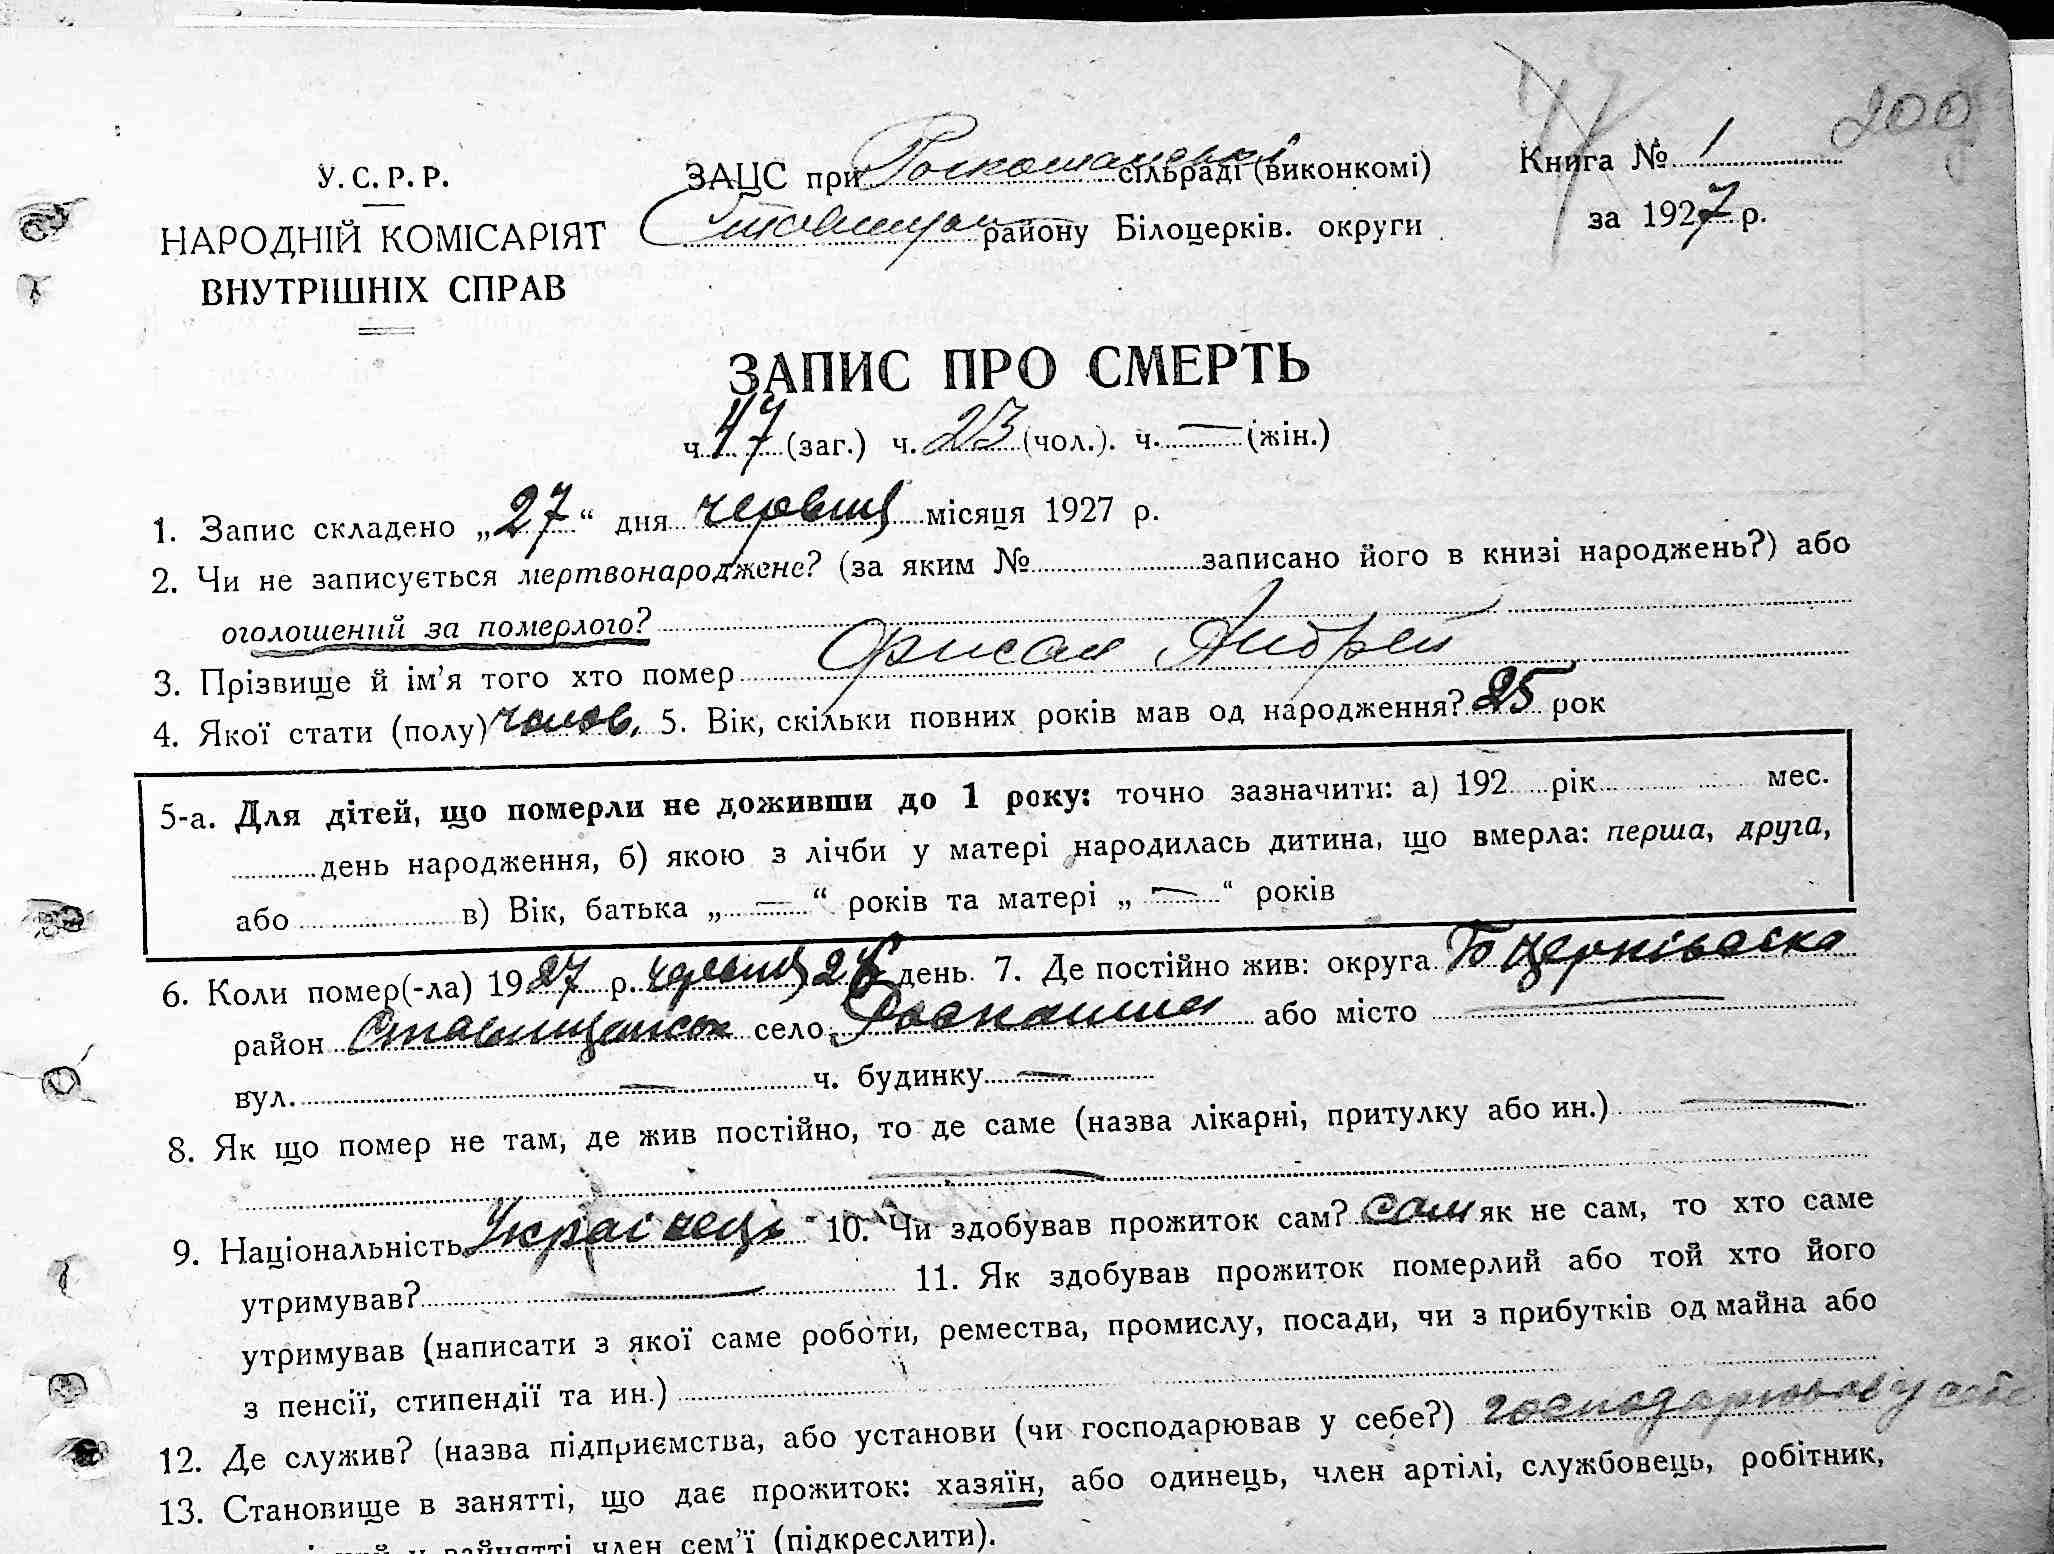 200
У.С.Р.Р.
НАРОДНІЙ КОМІСАРІЯТ
ВНУТРІШНІХ СПРАВ
ЗАЦС при сільраді (виконкомі)
району Білоцерків. округи
Книга № 1
за 1927 р.
ЗАПИС ПРО СМЕРТЬ
ч. 47 (заг.) ч. 23 (чол.). ч. — (жін.)
1. Запис складено „27“ дня червня місяця 1927 р.
2. Чи не записується мертвонароджене? (за яким № записано його в книзі народжень?) або
оголошений за померлого?
3. Прізвище й ім’я того хто помер Андрей
4. Якої стати (полу) чолов. 5. Вік, скільки повних років мав од народження? 25 рок
5-а. Для дітей, що померли не доживши до 1 року: точно зазначити: а) 192 рік мес.
день народження, б) якою з лічби у матері народилась дитина, що вмерла: перша, друга,
або в) Вік, батька „—“ років та матері „—“ років
6. Коли помер(-ла) 1927 р. червня 26 день. 7. Де постійно жив: округа Б Церківська
район Ставищанськ село Роскошна або місто —
вул. — ч. будинку —
8. Як що помер не там, де жив постійно, то де саме (назва лікарні, притулку або ин.) —
—
9. Національність Українець 10. Чи здобував прожиток сам? сам як не сам, то хто саме
утримував? — 11. Як здобував прожиток померлий або той хто його
утримував (написати з якої саме роботи, ремества, промислу, посади, чи з прибутків од майна або
з пенсії, стипендії та ин.)
12. Де служив? (назва підприємства, або установи (чи господарював у себе?) господарював у себе
13. Становище в занятті, що дає прожиток: хазяїн, або одинець, член артілі, службовець, робітник,
член сем’ї (підкреслити).